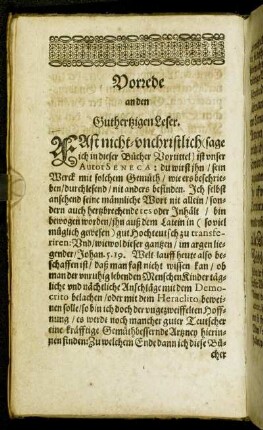 Vorrede
an den
Guthertzigen Leser.
FAst nicht vnchristlich (sage
ich in dieser Bücher Vortittel) ist vnser
Autor SENECA: du wirst jhn / sein
Werck mit solchem Gemüth / wie ers beschrie-
ben / durchlesend / nit anders befinden. Ich selbst
ansehend seine männliche Wort nit allein / son-
dern auch hertzbrechendetes oder Inhält / bin
bewogen worden / jhn auß dem Latein in (so viel
müglich gewesen) gut Hochteutsch zu transfe-
riren: Vnd / wiewol dieser gantzen / im argen lie-
gender / Johan. 5.19. Welt lauff heute also be-
schaffen ist / daß man fast nicht wissen kan / ob
man der vnruhig lebenden Menschen Kinder täg-
liche vnd nächtliche Anschläge mit dem Demo-
crito belachen / oder mit dem Heraclito bewei-
nen solle / so bin ich doch der vngezweiffelten Hoff-
nung / es werde noch mancher guter Teutscher
eine kräfftige Gemüthbessernde Artzney hierin-
nen finden: Zu welchem Ende dann ich diese Bü-
cher